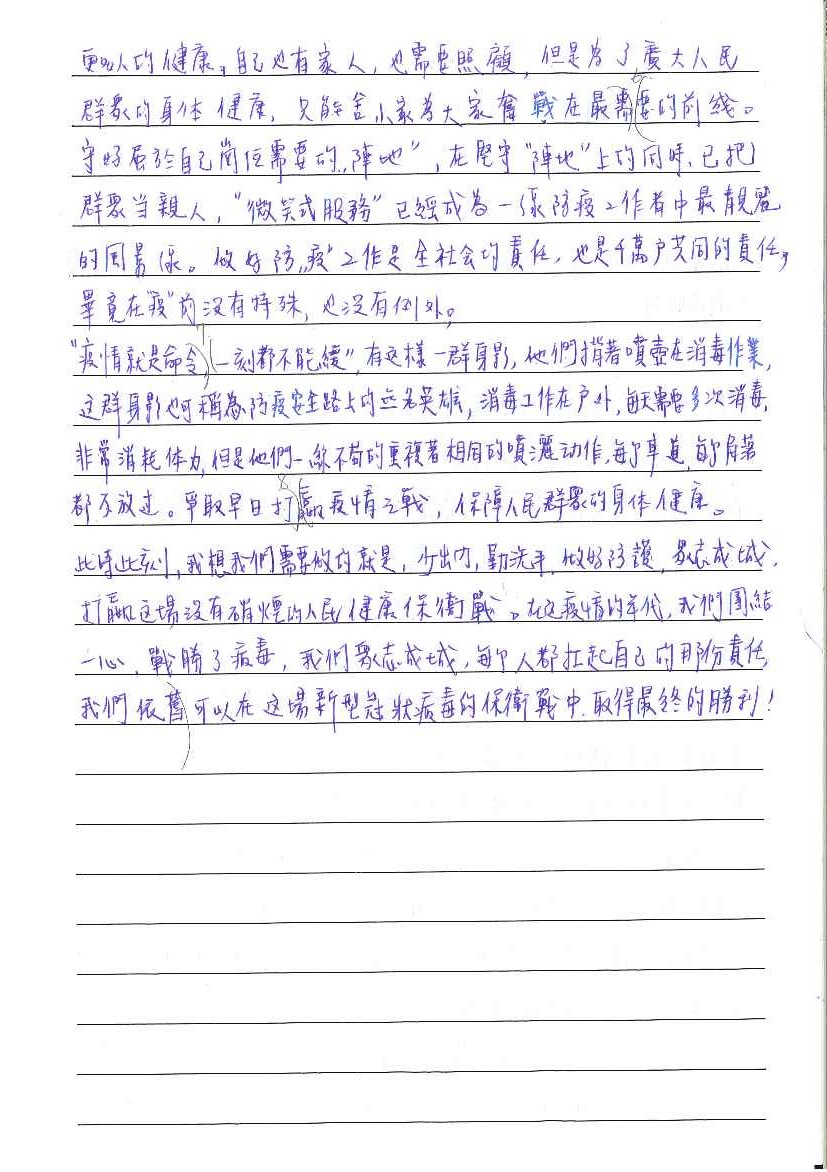 更多人的健康。自己也有家人，也需要照顧，但是為了廣大人民
群眾的身体健康，只能舍小家為大家奮戰在最需要的前线。
守好居於自己崗位需要的“陣地”，在堅守“陣地”上的同時，已把
群眾当親人，“微笑式服務”已經成為一線防疫工作者中最靚麗
的風景線。做好防“疫”工作是全社会的責任，也是千萬户共同的責任，
畢竟在“疫”前没有特殊，也没有例外。
“疫情就是命令，一刻都不能緩”，有这樣一群身影，他們揹著噴壺在消毒作業，
这群身影也可稱為防疫安全路上的無名英雄，消毒工作在户外，每天需要多次消毒，
非常消耗体力，但是他們一絲不苟的重複著相同的噴灑动作，每个車道，每个角落
都不放过。爭取早日打贏疫情之戰，保障人民群眾的身体健康。
此時此刻，我想我們需要做的就是，少出門，勤洗手，做好防護，眾志成城，
打贏这場没有硝煙的人民健康保衛戰。在这疫情的年代，我們團結
一心，戰勝了病毒，我們眾志成城，每个人都扛起自己的那份責任，
我們依舊可以在这場新型冠狀病毒的保衛戰中，取得最終的勝利！